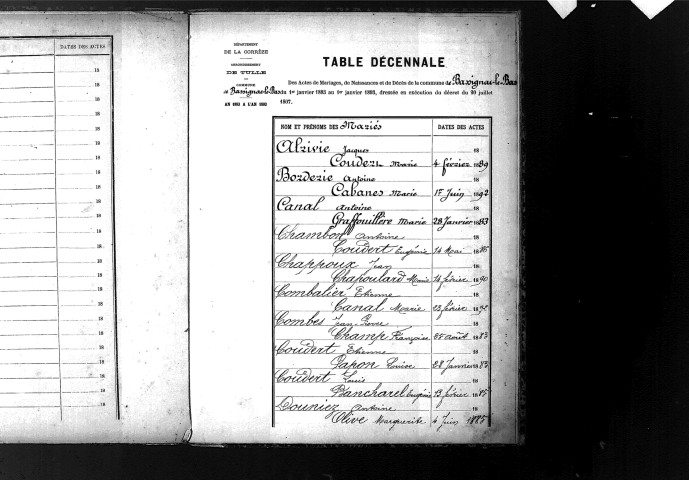 DATES DES ACTES
18
18
18
18
18
18
18
18
18
18
18
18
18
18
18
18
18
18
18
18
DÉPARTEMENT
DE LA CORRÈZE
ARRONDISSEMENT
DE TULLE
COMMUNE
de Bassignac-le-Bas
AN 1883 A L'AN 1892
TABLE DÉCENNALE
Des Actes de Mariages, de Naissances et de Décès de la commune de Bassignac-le-Bas
du 1er janvier 1883 au 1er janvier 1893, dressée en exécution du décret du 20 juillet
1807.
NOM ET PRÉNOMS DES Mariés DATES DES ACTES
Alrivie Jacques 18
Couderc Marie 4 février 1889
Borderie Antoine 18
Cabanes Marie 17 Juin 1892
Canal Antoine 18
Graffouillère Marie 28 Janvier 1883
Chambon Antoine 18
Coudert Eugénie 24 Mai 1885
Chappoux Jean 18
Chapoulard Marie 14 février 1890
Combalier Etienne 18
Canal Marie 23 février 1892
Combes Jean-Pierre 18
Champ Françoise 25 août 1883
Coudert Etienne 18
Papon Louise 28 Janvier 1883
Coudert Louis 18
Plancharel Eugénie 13 février 1885
Douniez Antoine 18
Olive Marguerite 4 Juin 1885